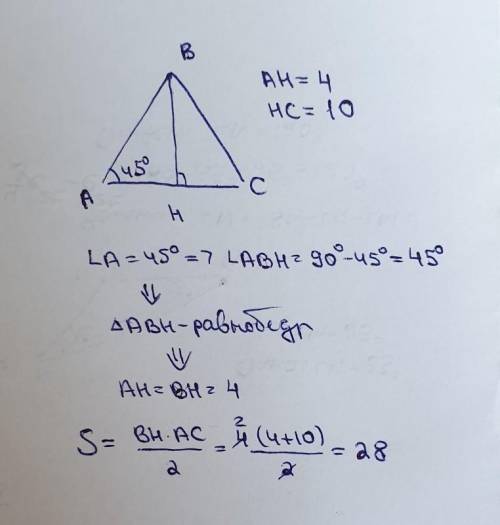 B
AH = 4
HC = 10
45°
A
C
H
∠A = 45° => ∠ABH = 90° - 45° = 45°
⇓
△ABH - равнобедр
⇓
AH = BH = 4
S = BH · AC / 2 = 4 2 (4+10) / 2 = 28